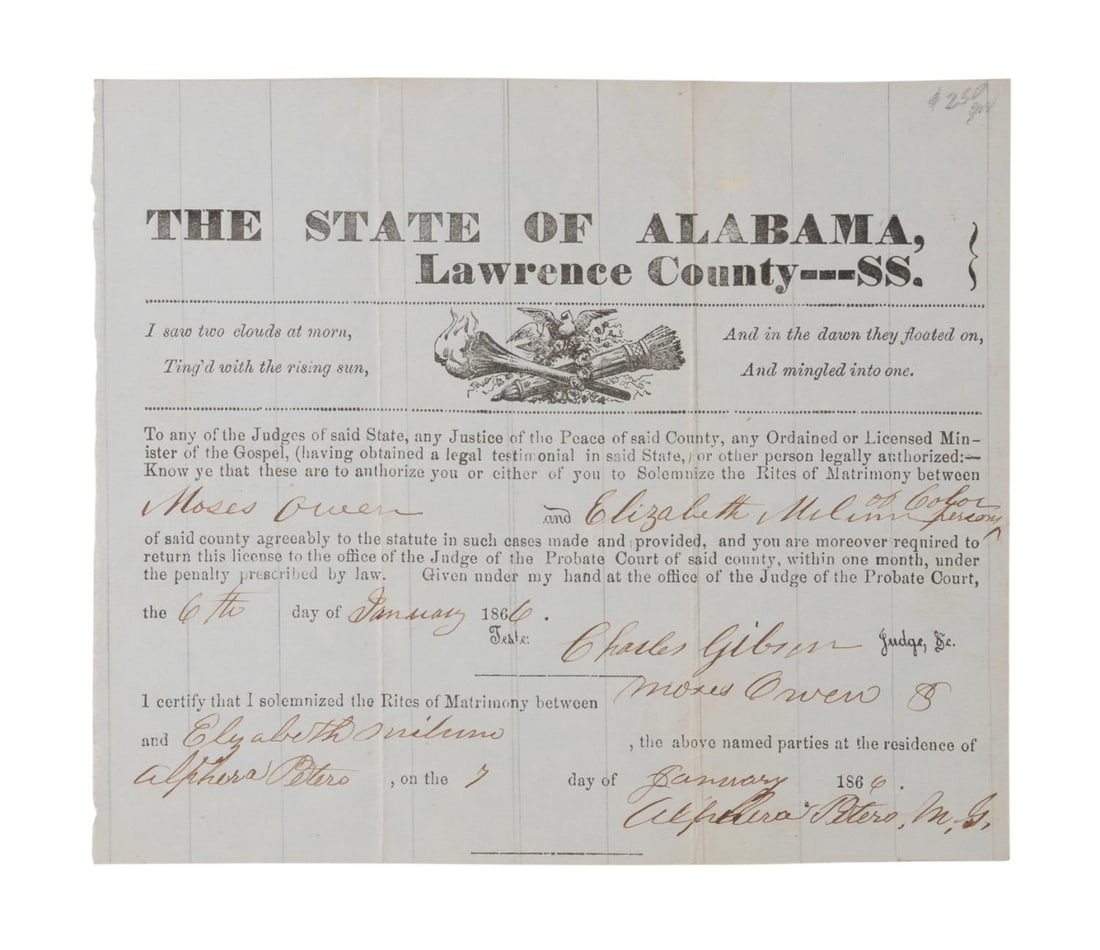 $2.50
THE STATE OF ALABAMA,
Lawrence County---SS.
I saw two clouds at morn,
Ting'd with the rising sun,
And in the dawn they floated on,
And mingled into one.
To any of the Judges of said State, any Justice of the Peace of said County, any Ordained or Licensed Min-
ister of the Gospel, (having obtained a legal testimonial in said State,) or other person legally authorized:—
Know ye that these are to anthorize you or either of you to Solemnize the Rites of Matrimony between
Moses Owen and Elizabeth of Color persons
of said county agreeably to the statute in such cases made and provided, and you are moreover required to
return this license to the office of the Judge of the Probate Court of said county, within one month, under
the penalty prescribed by law. Given under my hand at the office of the Judge of the Probate Court,
the 6th day of January 1866.
Teste: Charles Gibson Judge, &c.
I certify that I solemnized the Rites of Matrimony between Moses Owen &
and Elizabeth Milum, the above named parties at the residence of
Alphera Peters, on the 7 day of January 1866.
Alphera Peters, M. G.